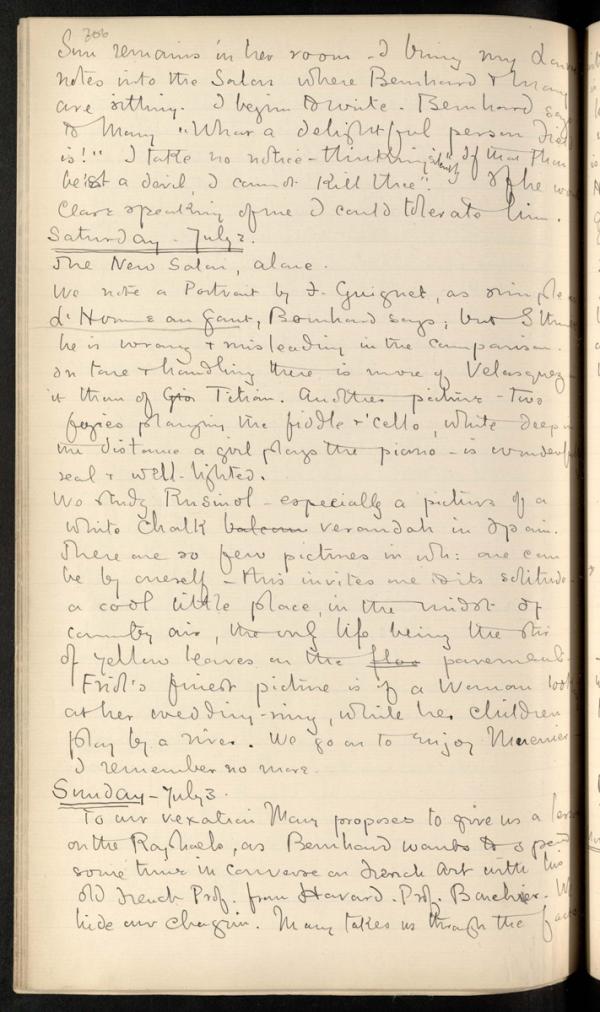 306
Sim remains in her room – I bring my
notes into the Salon where Bernhard & Mary
are sitting. I begin to write. Bernhard says
to Mary "What a delightful person Field
is!" I take no notice – thinking silently "If that thou
be'est a devil, I cannot kill thee". If he
Clare speaking of me I could tolerate him.
Saturday – July 2.
The New Salon, alone.
We note a Portrait by F. Guignet, as simple as
L'Homme au Gant, Bernhard says; but I think
he is wrong & misleading in the comparison.
In tone & handling there is more of Velasquez in
it than of Gio Titian. Another picture – two
fogies playing the fiddle & 'cello, while deep in
the distance a girl plays the piano – is wonderfully
real & well-lighted.
We study Rusinol – especially a picture of a
white chalk balcony verandah in Spain.
There are so few pictures in wh: one can
be by oneself – this invites me to its solitude
a cool little place, in the midst of
country air, the only life being the stir
of yellow leaves on the floo pavement.
Fridl's finest picture is of a Woman
at her wedding-ring, while her children
play by a river. We go on to enjoy
I remember no more.
Sunday – July 3.
To our vexation Mary proposes to give us a
on the Raphaels, as Bernhard wants to spend
some time in converse on French Art with his
old French Prof. from Harvard. Prof. We
hide our chagrin. Mary takes us through the